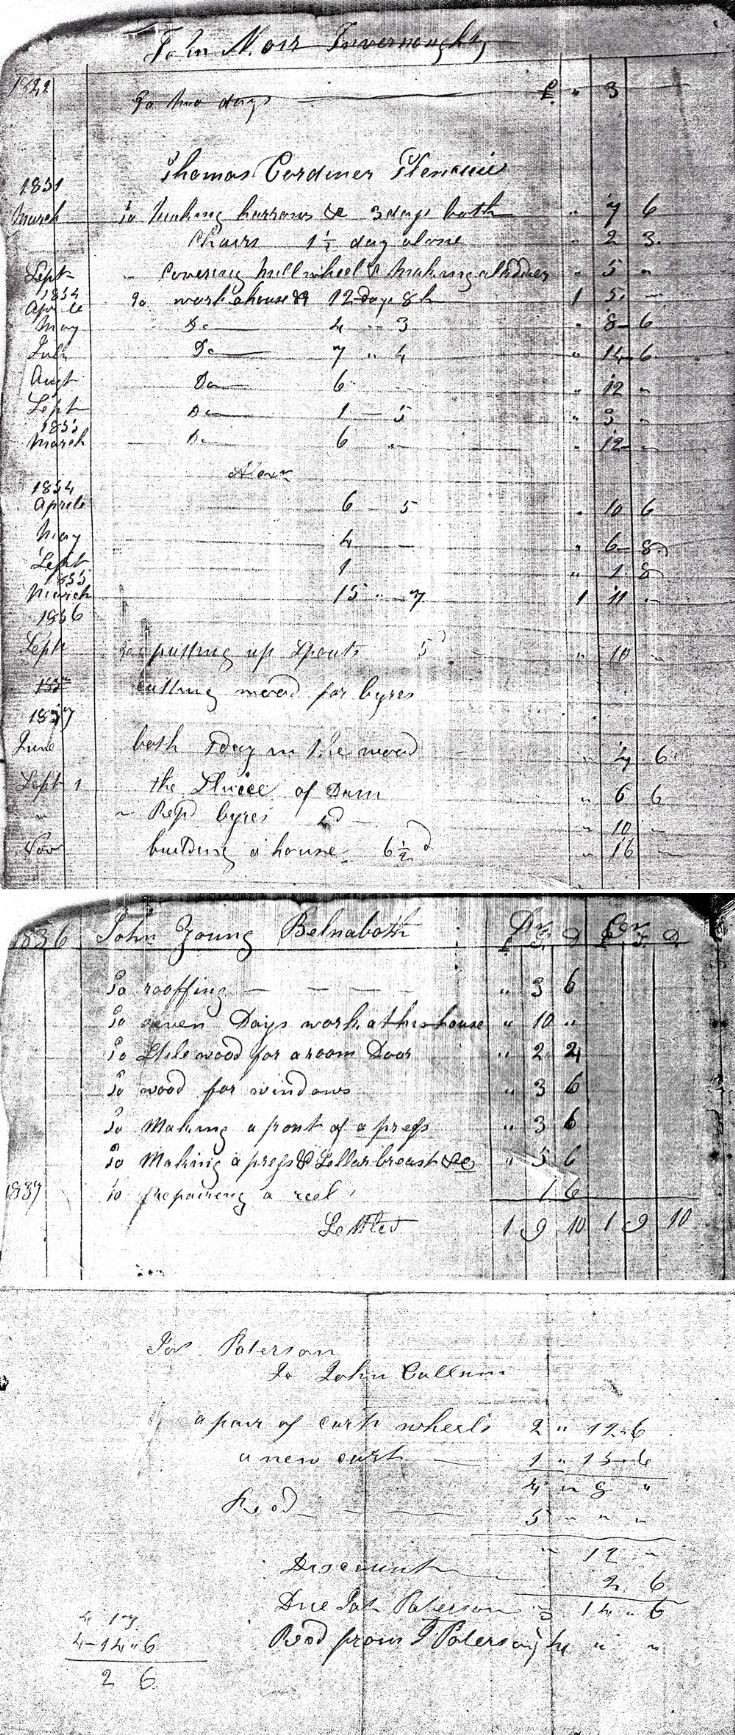 John Moir Invernoughty
1822
To two days £ " 3
Thomas Cordiner
1831
March To making harrows &c 3 days both " 7 6
Chairs 1½ day alone " 2 3
Sept " Covering mill wheel & making " 5 "
1834
Aprile To work a house 12 days 8h 1 5 "
May Do 4 " 3 " 8 6
July Do 7 " 4 " 14 6
Augt Do 6 " 12 "
Sept Do 1 5 " 3 "
1835
March Do 6 " " 12 "
1834
Aprile 6 5 " 10 6
May 4 " 6 8
Sept 1 " 1 8
1835
March 15 " 7 1 11 "
1836
Sept To putting up spouts 5 " 10 "
cutting wood for byres
1837
June both day in the wood " 7 6
Sept the Sluice of Dam " 6 6
" Repd byres d " 10 "
Nov building a house 6½ d " 16
1836 John Young Belnaboth Dr Cr
£ S D £ S D
To rooffing " 3 6
To seven Days work at his house " 10 "
To Stile wood for a room Door " 2 4
To wood for windows " 3 6
To Making a front of a press " 3 6
To Making a press & breast &c " 5 6
1837 To repaireng a reel 1 6
Settled 1 9 10 1 9 10
Paterson
To John Callum
a pair of cart wheels 2 " 12 " 6
a new cart 1 " 15 " 6
4 " 8 "
5 " " "
" 12 "
Discount 2 6
Due Paterson 14 " 6
from Paterson
4 17
4 - 14 " 6
2 6